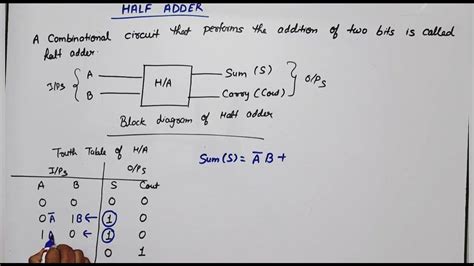 HALF ADDER
A Combinational circuit that performs the addition of two bits is called
half adder.
I/Ps { A B H/A Sum (S) Carry (Cout) } O/Ps
Block diagram of Half adder
Truth Table of H/A
I/Ps O/Ps
A B S Cout
0 0 0 0
0 A̅ 1B ← 1 0
1 0 ← 1 0
0 1
Sum (S) = A̅ B +